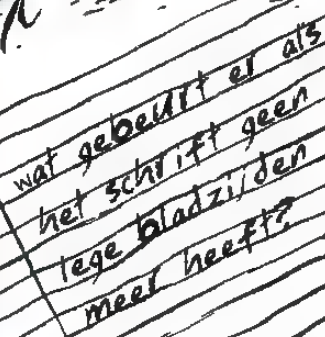 wat gebeurt er als
het schrift geen
lege bladzijden
meer heeft?